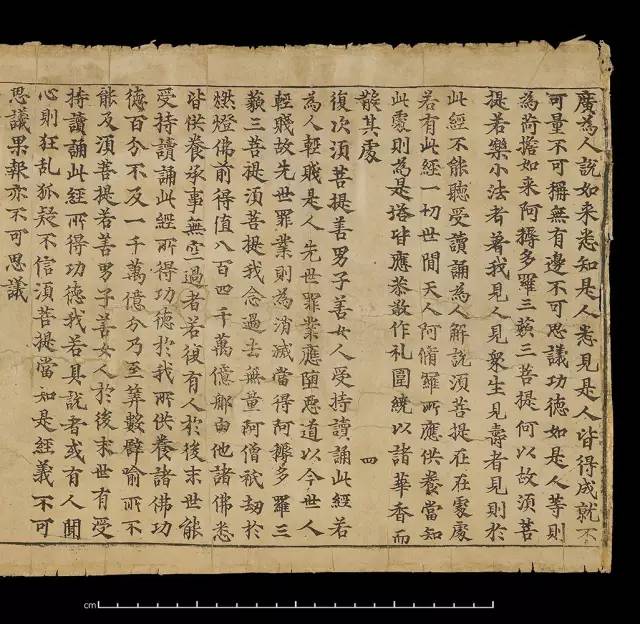 廣為人說如来悉知是人悉見是人皆得成就不
可量不可稱無有邊不可思議功德如是人等則
為荷擔如来阿耨多羅三藐三菩提何以故須菩
提若樂小法者著我見人見衆生見壽者見則於
此經不能聽受讀誦為人解說須菩提在在處處
若有此經一切世間天人阿脩羅所應供養當知
此處則為是塔皆應恭敬作礼圍繞以諸華香而
散其處 四
復次須菩提善男子善女人受持讀誦此經若
為人輕賤是人先世罪業應墮惡道以今世人
輕賤故先世罪業則為消滅當得阿耨多羅三
藐三菩提須菩提我念過去無量阿僧祇劫於
燃燈佛前得值八百四千萬億那由他諸佛悉
皆供養承事無空過者若復有人於後末世能
受持讀誦此經所得功德於我所供養諸佛功
德百分不及一千萬億分乃至筭數譬喻所不
能及須菩提若善男子善女人於後末世有受
持讀誦此經所得功德我若具說者或有人聞
心則狂乱狐疑不信須菩提當知是經義不可
思議果報亦不可思議
cm